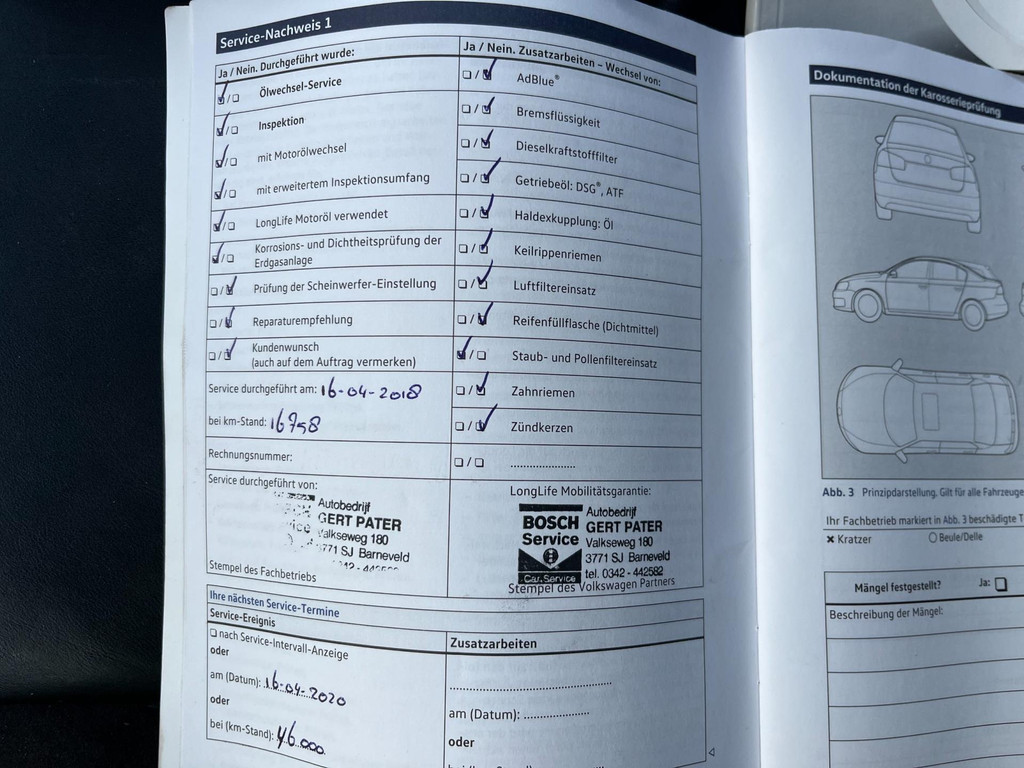 Service-Nachweis 1
Ja / Nein. Durchgeführt wurde:
☑/☐ Ölwechsel-Service
☑/☐ Inspektion
☑/☐ mit Motorölwechsel
☑/☐ mit erweitertem Inspektionsumfang
☑/☐ LongLife Motoröl verwendet
☑/☐ Korrosions- und Dichtheitsprüfung der
Erdgasanlage
☐/☑ Prüfung der Scheinwerfer-Einstellung
☐/☑ Reparaturempfehlung
☐/☑ Kundenwunsch
(auch auf dem Auftrag vermerken)
Service durchgeführt am: 16-04-2018
bei km-Stand: 16758
Rechnungsnummer:
Service durchgeführt von:
Autobedrijf
GERT PATER
Valkseweg 180
3771 SJ Barneveld
Stempel des Fachbetriebs
Ja / Nein. Zusatzarbeiten – Wechsel von:
☐/☑ AdBlue®
☐/☑ Bremsflüssigkeit
☐/☑ Dieselkraftstofffilter
☐/☑ Getriebeöl: DSG®, ATF
☐/☑ Haldexkupplung: Öl
☐/☑ Keilrippenriemen
☐/☑ Luftfiltereinsatz
☐/☑ Reifenfüllflasche (Dichtmittel)
☑/☐ Staub- und Pollenfiltereinsatz
☐/☑ Zahnriemen
☐/☑ Zündkerzen
☐/☐ ......................
LongLife Mobilitätsgarantie:
BOSCH
Service
Car Service
Autobedrijf
GERT PATER
Valkseweg 180
3771 SJ Barneveld
tel. 0342 - 442582
Stempel des Volkswagen Partners
Ihre nächsten Service-Termine
Service-Ereignis
☐ nach Service-Intervall-Anzeige
oder
am (Datum): 16-04-2020
oder
bei (km-Stand): 46.000
Zusatzarbeiten
am (Datum): ......................
oder
Dokumentation der Karosserieprüfung
Abb. 3 Prinzipdarstellung. Gilt für alle Fahrzeuge
Ihr Fachbetrieb markiert in Abb. 3 beschädigte
✖ Kratzer ○ Beule/Delle
Mängel festgestellt? Ja: ☐
Beschreibung der Mängel: